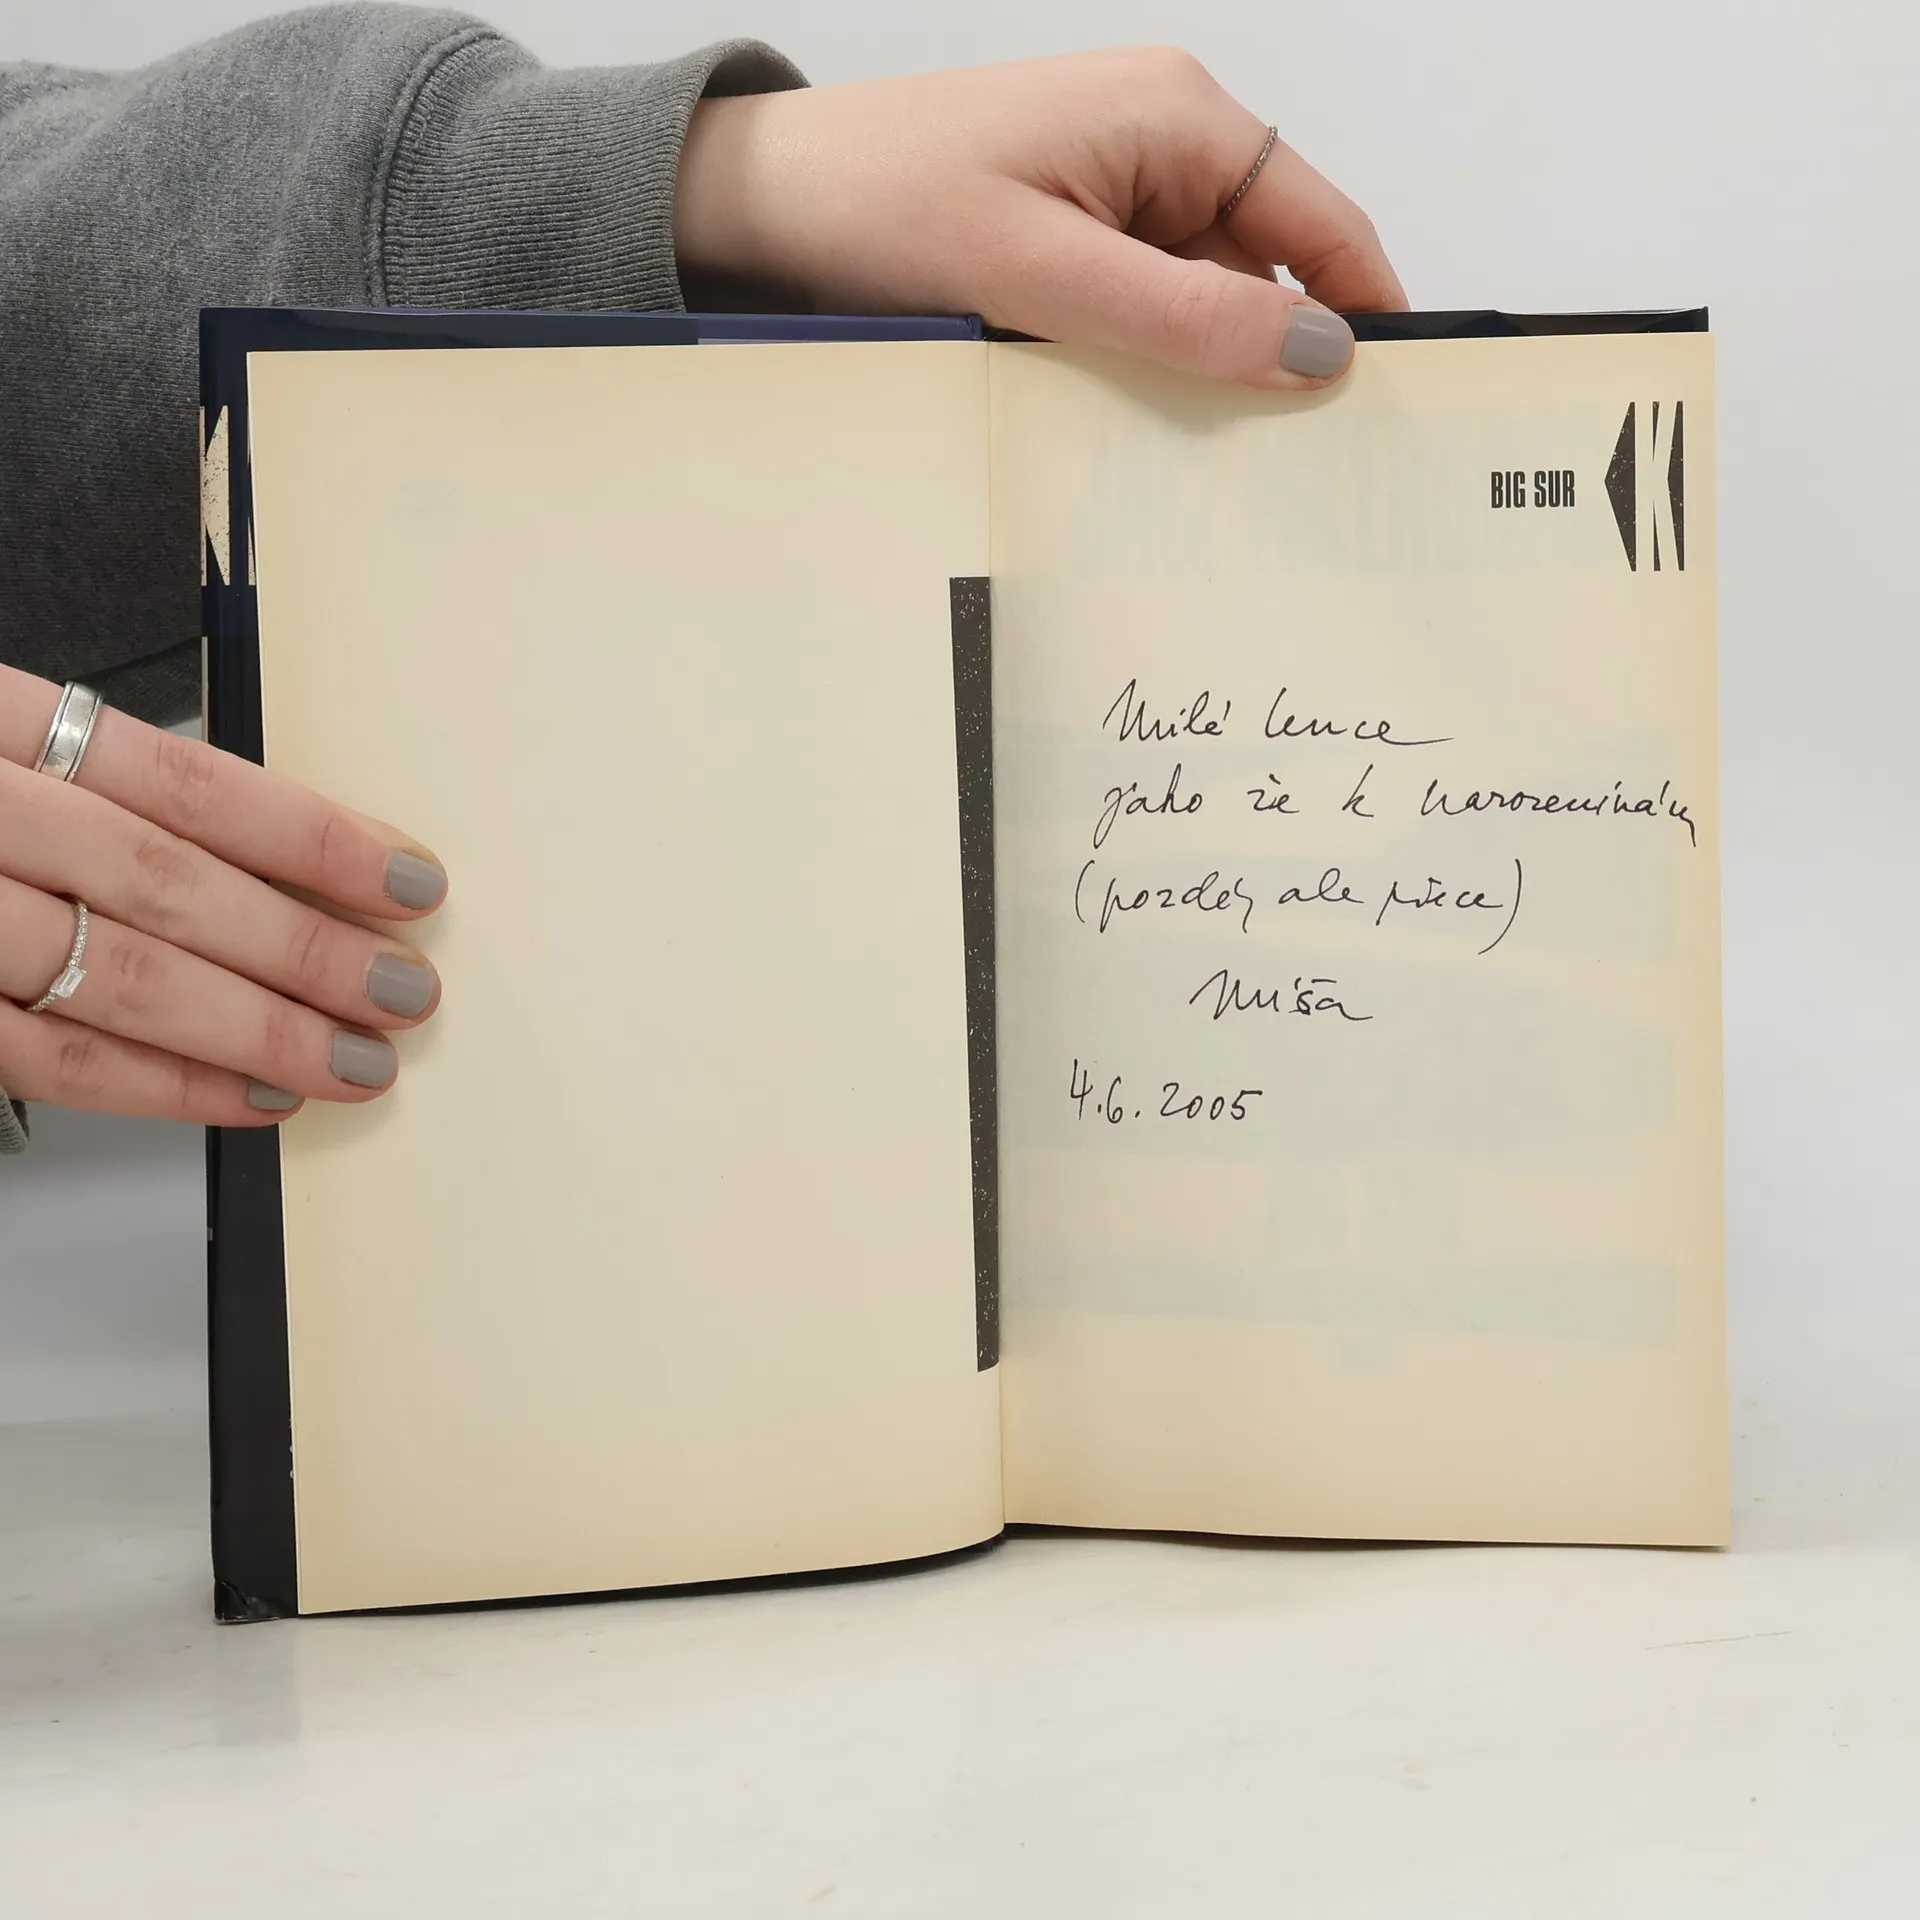 BIG SUR
K
K
Milé Lence
jako že k narozeninám
(pozdě, ale přece)
Míša
4.6. 2005